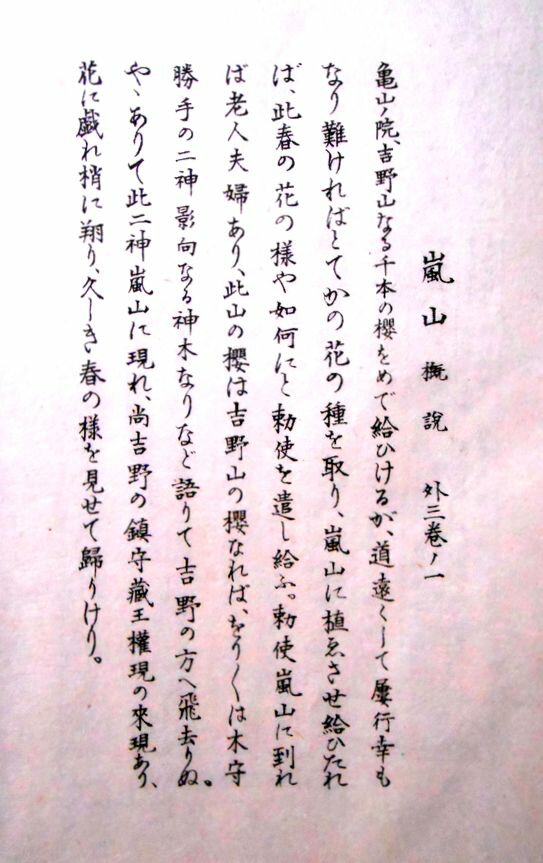 嵐山 概說 外三巻ノ一
亀山ノ院、吉野山なる千本の櫻をめで給ひけるが、道遠くして屡行幸も
なり難ければとてかの花の種を取り、嵐山に植ゑさせ給ひたれ
ば、此春の花の様や如何にと勅使を遣し給ふ。勅使嵐山に到れ
ば老人夫婦あり、此山の櫻は吉野山の櫻なれば、をり〱は木守
勝手の二神影向なる神木なりなど語りて吉野の方へ飛去りぬ。
やゝありて此二神嵐山に現れ、尚吉野の鎮守藏王權現の來現あり、
花に戯れ梢に翔り、久しき春の様を見せて歸りけり。